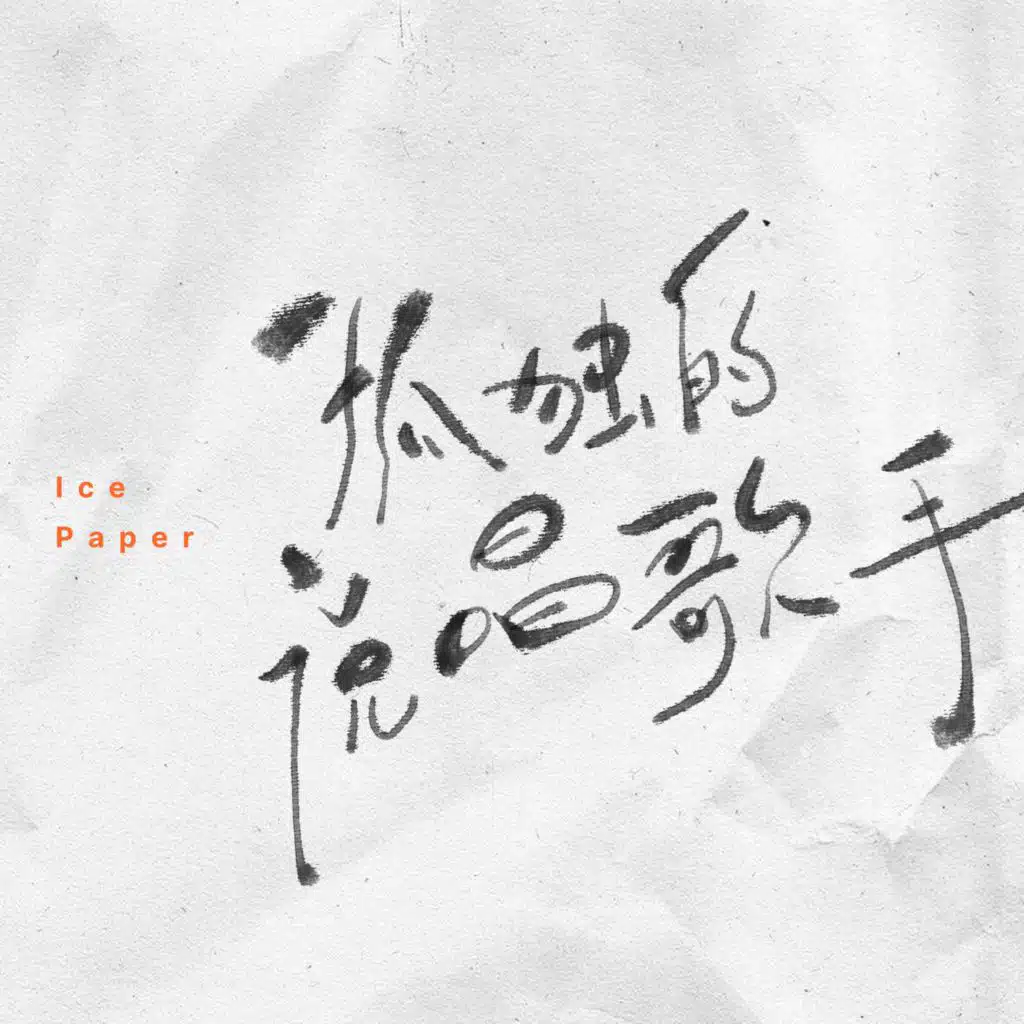 孤独的
说唱歌手
Ice
Paper